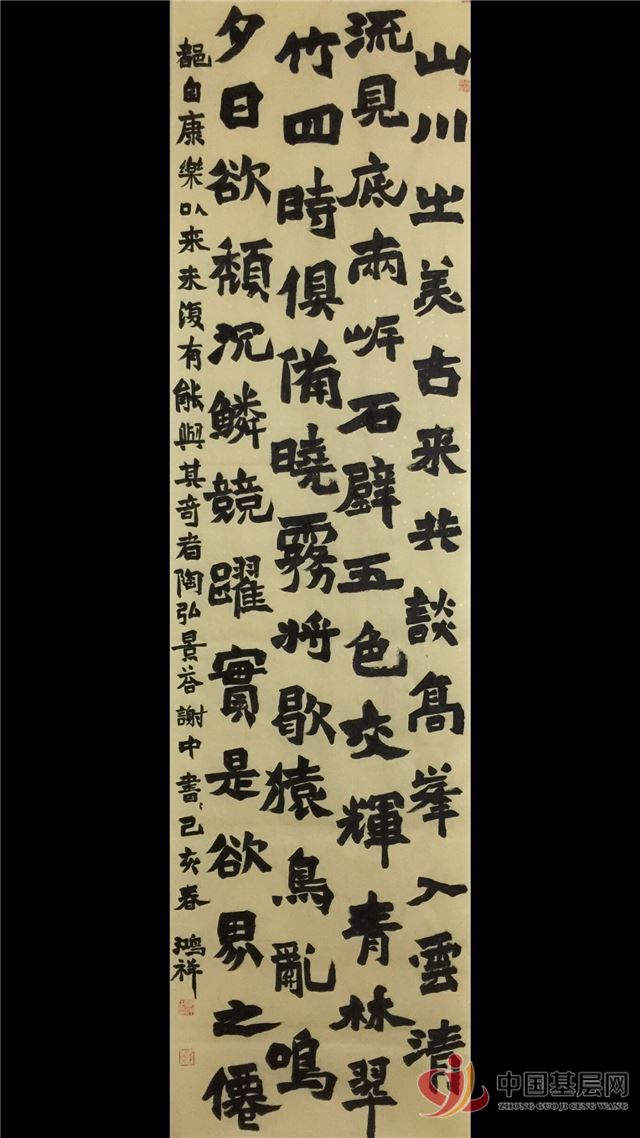 山川之美古来共談高峯入雲清
流見底兩岸石壁五色交輝青林翠
竹四時俱備曉霧將歇猿鳥亂鳴
夕日欲頹沉鱗競躍實是欲界之僊
都自康樂以来未復有能與其奇者陶弘景答謝中書〻己亥春 鴻祥
中国基层网
ZHONG GUO JI CENG WANG